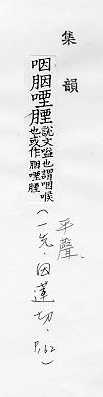 集韻
咽胭㖶𦜆說文嗌也謂咽喉也或作胭㖶𦜆(一先·因蓮切·P.162)
平聲、